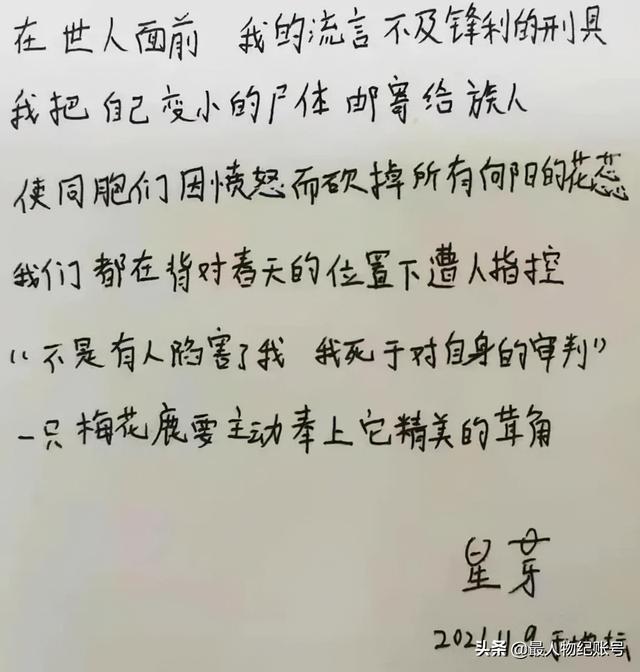 在世人面前 我的流言不及锋利的刑具
我把自己变小的尸体邮寄给族人
使同胞们因愤怒而砍掉所有向阳的花蕊
我们都在背对春天的位置下遭人指控
“不是有人陷害了我 我死于对自身的审判”
一只梅花鹿要主动奉上它精美的茸角
星芽
2021.11.9
头条 @最人物纪账号